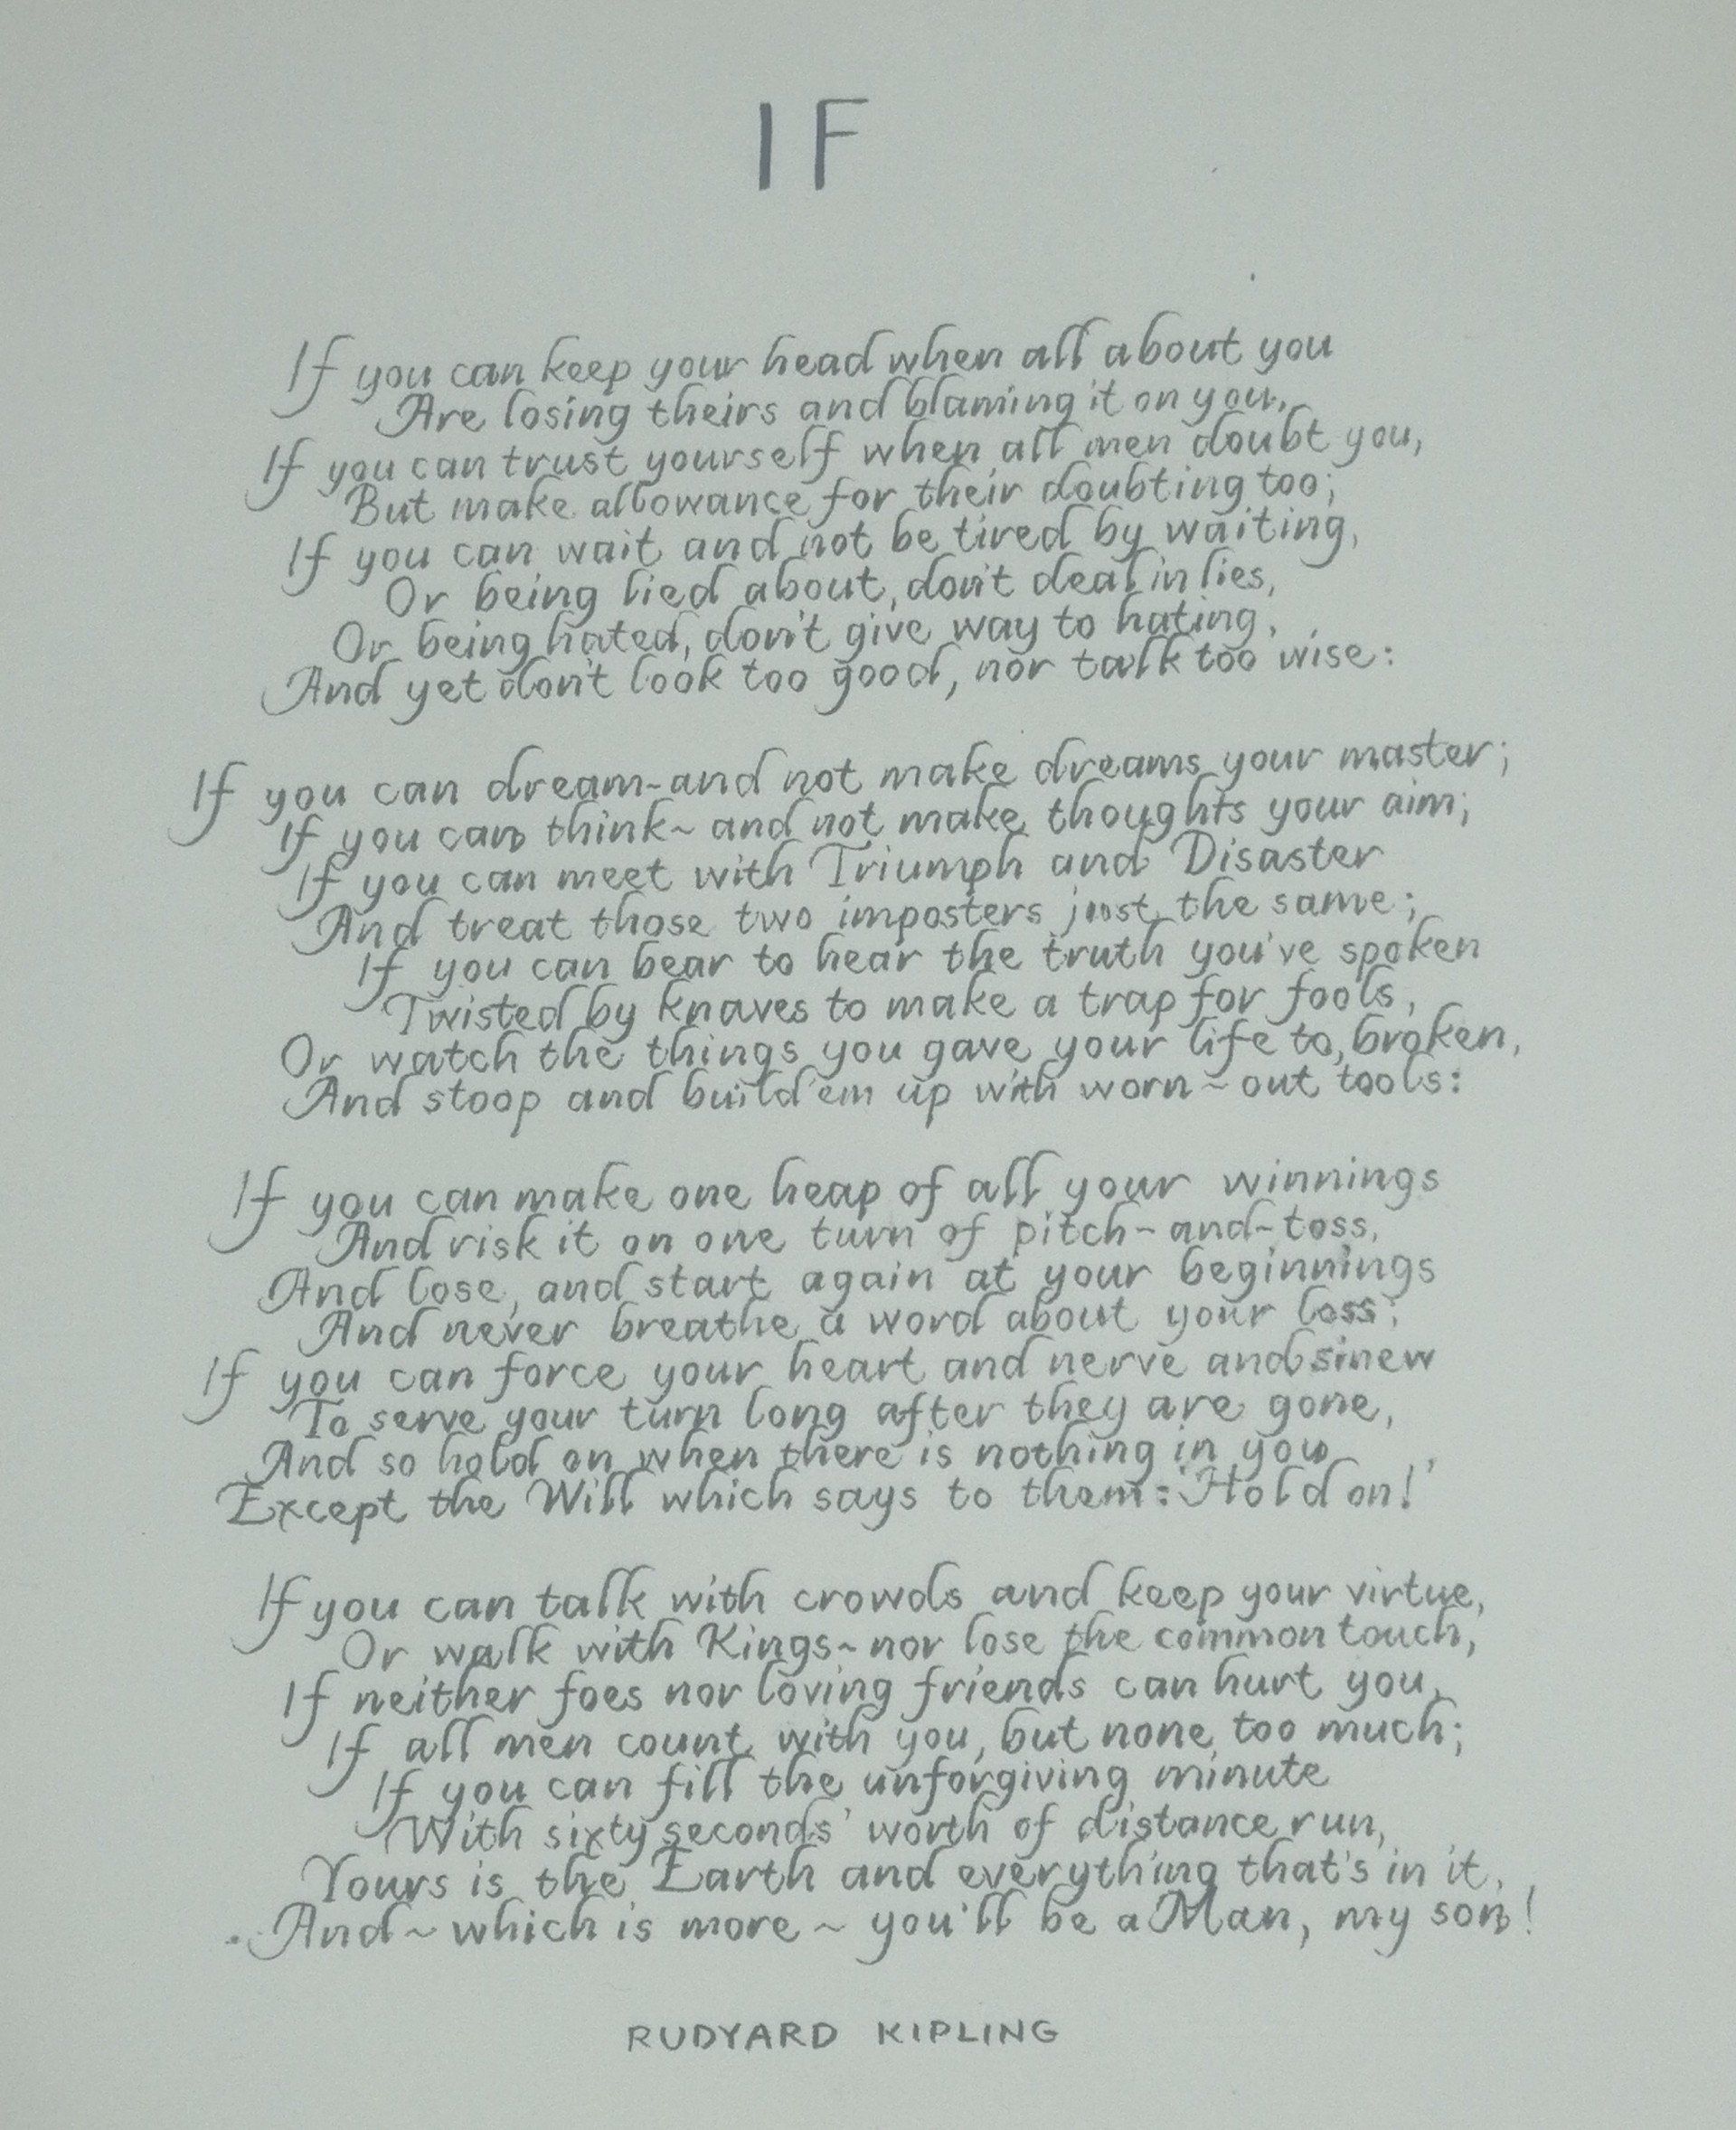 IF
If you can keep your head when all about you
Are losing theirs and blaming it on you,
If you can trust yourself when all men doubt you,
But make allowance for their doubting too;
If you can wait and not be tired by waiting,
Or being lied about, don't deal in lies,
Or being hated, don't give way to hating,
And yet don't look too good, nor talk too wise:
If you can dream-and not make dreams your master;
If you can think~and not make thoughts your aim;
If you can meet with Triumph and Disaster
And treat those two imposters just the same;
If you can bear to hear the truth you've spoken
Twisted by knaves to make a trap for fools,
Or watch the things you gave your life to, broken,
And stoop and build'em up with worn~out tools:
If you can make one heap of all your winnings
And risk it on one turn of pitch~and~toss,
And lose, and start again at your beginnings
And never breathe a word about your loss;
If you can force your heart and nerve and sinew
To serve your turn long after they are gone,
And so hold on when there is nothing in you
Except the Will which says to them: 'Hold on!'
If you can talk with crowds and keep your virtue,
Or walk with Kings~nor lose the common touch,
If neither foes nor loving friends can hurt you,
If all men count with you, but none too much;
If you can fill the unforgiving minute
With sixty seconds' worth of distance run,
Yours is the Earth and everything that's in it,
And~which is more~you'll be a Man, my son!
RUDYARD KIPLING